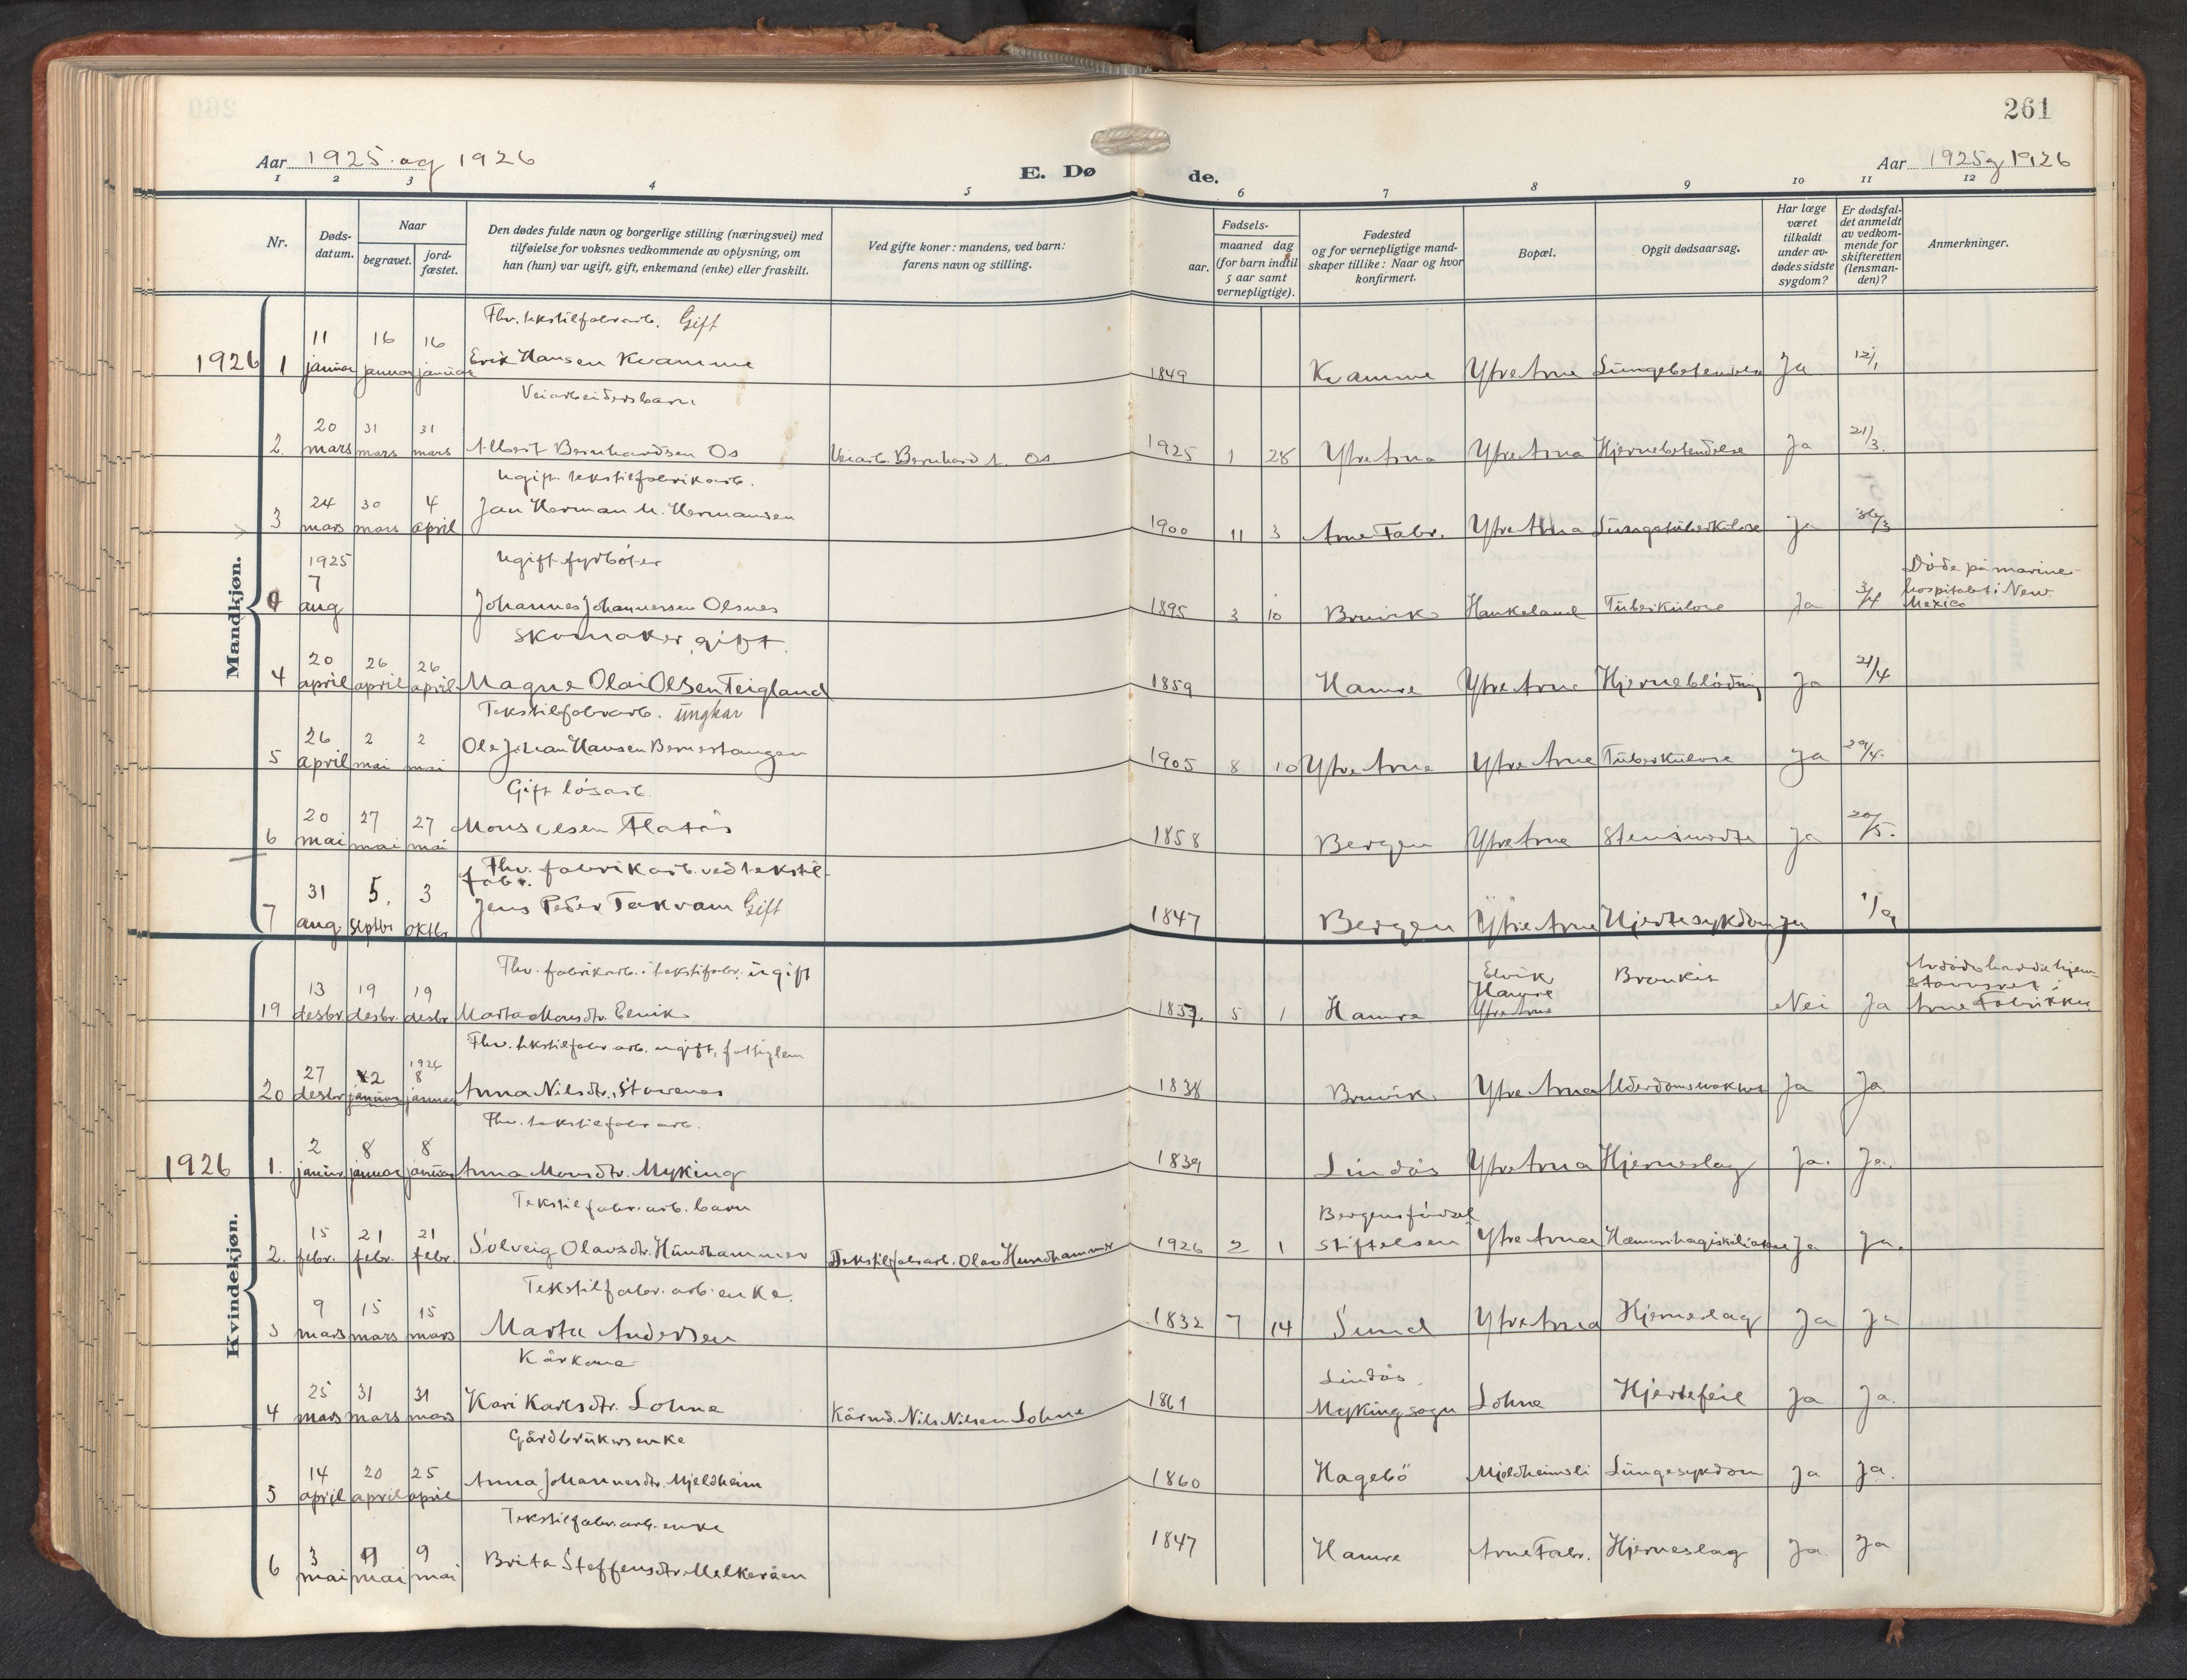 261
Aar 1925 og 1926
E. Døde.
Aar 1925 og 1926
1 2 3 4 5 6 7 8 9 10 11 12
Nr.
Døds-
datum.
Naar
begravet.
jord-
fæstet.
Den dødes fulde navn og borgerlige stilling (næringsvei) med
tilføielse for voksnes vedkommende av oplysning, om
han (hun) var ugift, gift, enkemand (enke) eller fraskilt.
Ved gifte koner: mandens, ved barn:
farens navn og stilling.
Fødsels-
aar.
maaned dag
(for barn indtil
5 aar samt
vernepligtige).
Fødested
og for vernepligtige mand-
skaper tillike: Naar og hvor
konfirmert.
Bopæl.
Opgit dødsaarsag.
Har læge
været
tilkaldt
under av-
dødes sidste
sygdom?
Er dødsfal-
det anmeldt
av vedkom-
mende for
skifteretten
(lensman-
den)?
Anmerkninger.
Mandkjøn.
Fhv. tekstilfabrarb. Gift
1926 1 11 januar 16 januar 16 januar Erik Hansen Kvamme 1849 Kvamme Ytre Arne Lungebetendelse Ja 12/1
Veiarbeidersbarn
2. 20 mars 31 mars 31 mars Albert Bernhardsen Os Veiarb. Bernhard A. Os 1925 1 28 Ytre Arna Ytre Arna Hjernebetendelse Ja 21/3.
Ugift tekstilfabrikarb.
3 24 mars 30 mars 4 april Jan Herman M. Hermansen 1900 11 3 Arne Fabr. Ytre Arna Lungetuberkulose Ja /3
1925 Ugift fyrbøter
7 aug Johannes Johannessen Olsnes 1895 3 10 Bruvik Haukeland Tuberkulose Ja 3/4 Døde på marine-
hospitalet i New
Mexico
Skomaker, gift.
4 20 april 26 april 26 april Magne Olai Olsen Teigland 1859 Hamre Ytre Arne Hjerneblødning Ja 21/4
Tekstilfabrarb. ungkar
5 26 april 2 mai 2 mai Ole Johan Hansen Bernestangen 1905 8 10 Ytre Arne Ytre Arne Tuberkulose Ja 29/4.
Gift løsarb.
6 20 mai 27 mai 27 mai Mons Olsen Flatås 1858 Bergen Ytre Arne Ja 20/5.
Fhv. fabrikarb. ved tekstil-
fabr.
7 31 aug 5. septbr 3 oktbr Jens Peder Takvam Gift 1847 Bergen Ytre Arne Hjertesykdom Ja 1/9
Kvindekjøn.
Fhv. fabrikarb. i tekstilfabr. ugift
19 13 desbr 19 desbr. 19 desbr Marta Monsdtr. Elvik 1837. 5 1 Hamre Elvik
Hamre
Ytre Arne Bronkit Nei Ja Avdøde hadde hjem-
stavnsret i
Arne Fabrikker.
Fhv. tekstilfabrarb. ugift, fattiglem
20 27 desbr 2 januar 1926 8 januar Anna Nilsdtr. Stavenes 1838 Bruvik Ytre Arna Alderdomssvakhet Ja Ja
Fhv. tekstilfabrarb.
1926 1. 2 januar 8 januar 8 januar Anna Monsdtr. Myking 1839 Lindås Ytre Arna Hjerneslag Ja. Ja.
Tekstilfabr. arb. barn
2. 15 febr. 21 febr. 21 febr. Solveig Olavsdtr. Hundhammer Tekstilfabrarb. Olav Hundhammer 1926 2 1 Bergens fødsel
stiftelsen Ytre Arna Ja Ja.
Tekstilfabr. arb. enke.
3 9 mars 15 mars 15 mars Marta Andersen 1832 7 14 Sund Ytre Arna Hjerneslag Ja Ja
Kårkone
4 25 mars 31 mars 31 mars Kari Karlsdtr. Lohne Kårmd. Nils Nilsen Lohne 1861 Lindås.
Myking sogn Lohne Hjertefeil Ja Ja.
Gårdbrukersenke
5 14 april 20 april 25 april Anna Johannesdtr. Mjeldheim 1860 Hagebö Mjeldheimsli Lungesykdom Ja Ja.
Tekstilfabr. arb. enke
6 3 mai 9 mai 9 mai Brita Steffensdtr. Melkeråen 1847 Hamre Arne Fabr. Hjerneslag Ja. Ja